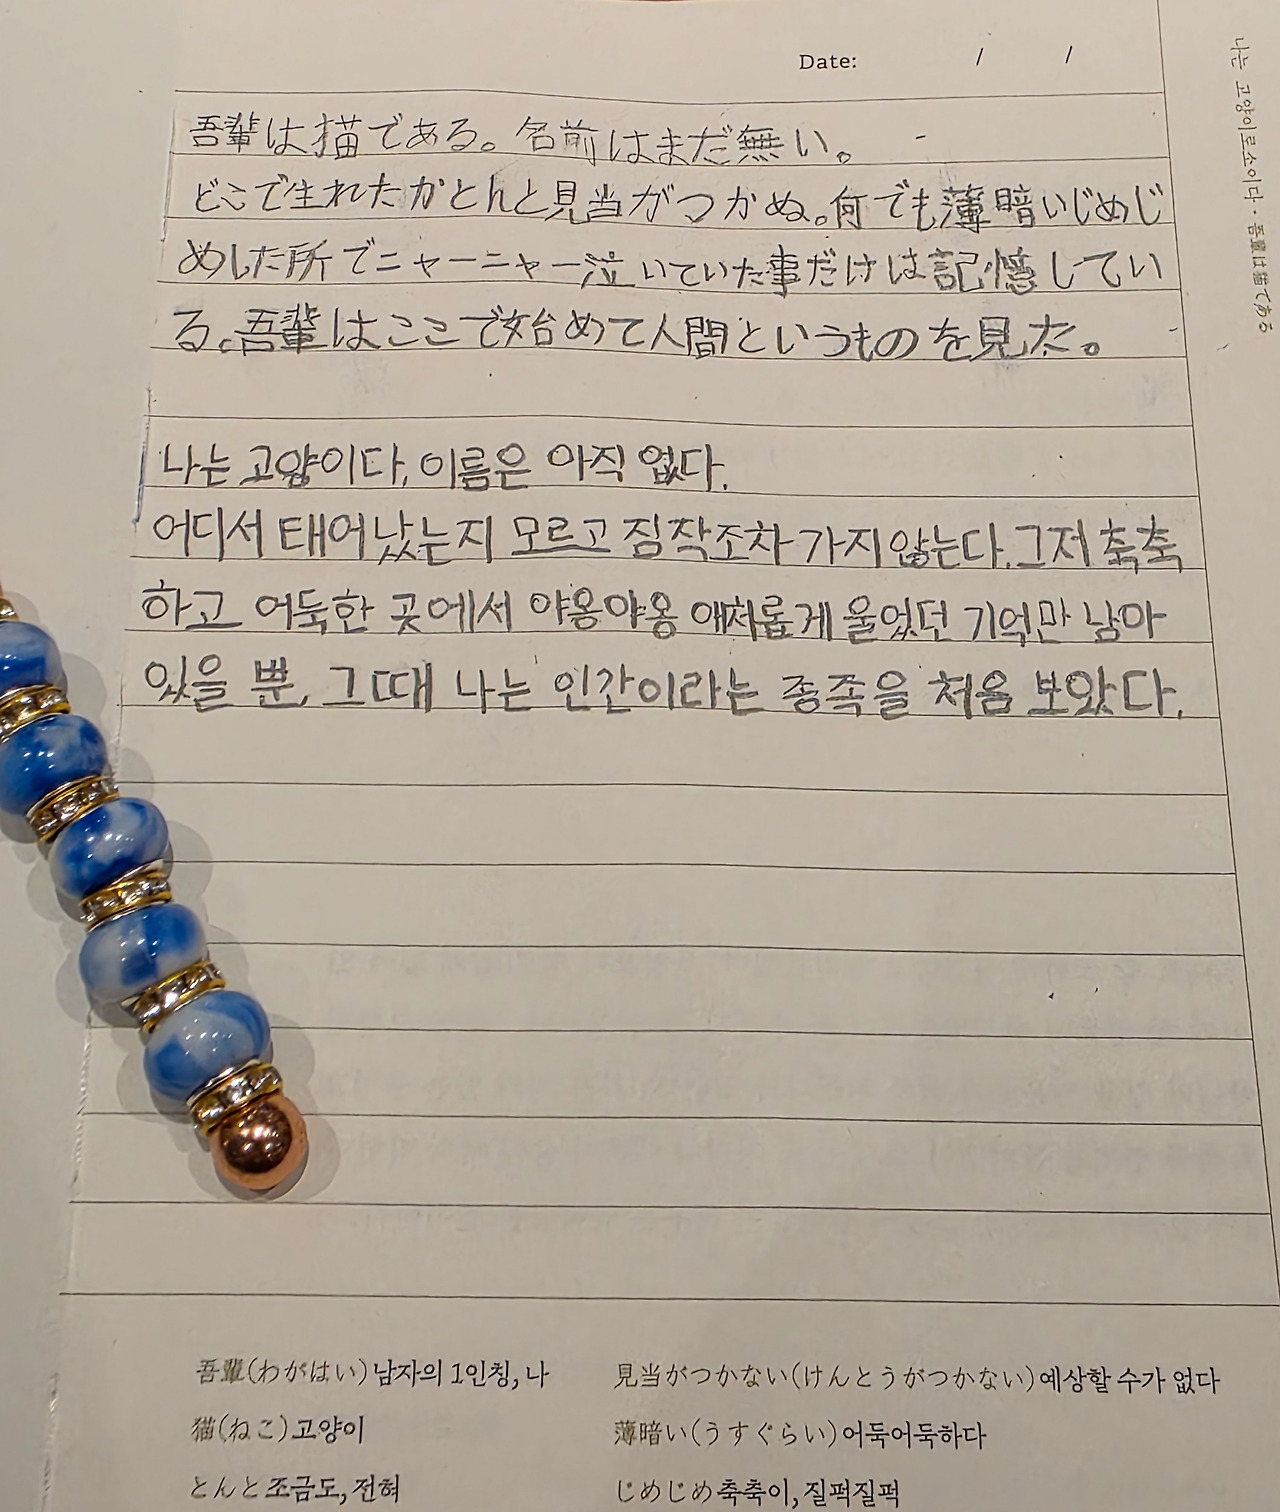 Date: / /
吾輩は描である。名前はまだ無い。
どこで生れたかとんと見当がつかぬ。何でも薄暗いじめじ
めした所でニャーニャー泣いていた事だけは記憶してい
る。吾輩はここで始めて人間というものを見た。
나는 고양이다. 이름은 아직 없다.
어디서 태어났는지 모르고 짐작조차 가지 않는다. 그저 축축
하고 어둑한 곳에서 야옹야옹 애처롭게 울었던 기억만 남아
있을 뿐, 그때 나는 인간이라는 종족을 처음 보았다.
吾輩(わがはい) 남자의 1인칭, 나
猫(ねこ) 고양이
とんと 조금도, 전혀
見当がつかない(けんとうがつかない) 예상할 수가 없다
薄暗い(うすぐらい) 어둑어둑하다
じめじめ 축축이, 질퍽질퍽
나는 고양이로소이다 · 吾輩は猫である